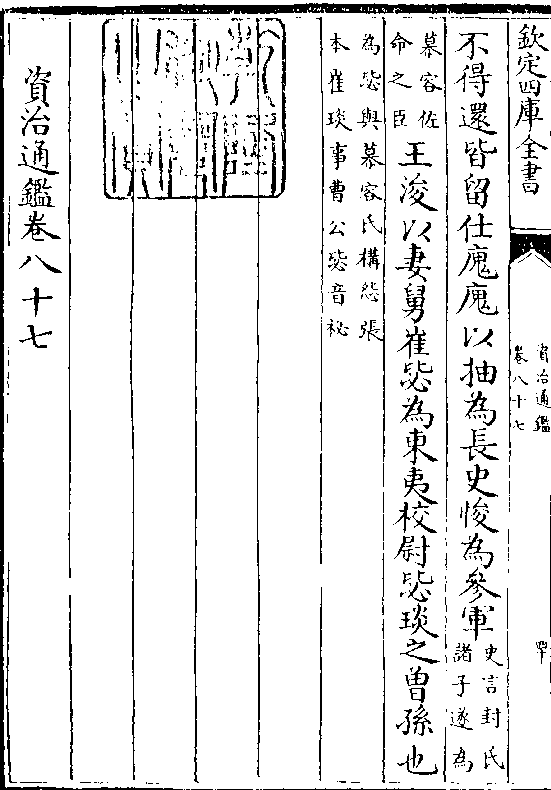 欽定四庫全書
資治通鑑
卷八十七
不得還皆留仕廆廆以抽為長史悛為參軍
史言封氏
諸子遂為
慕容佐
命之臣
王浚以妻舅崔毖為東夷校尉毖琰之曾孫也
為毖與慕容氏構怨張
本崔琰事曹公毖音祕
資治通鑑卷八十七